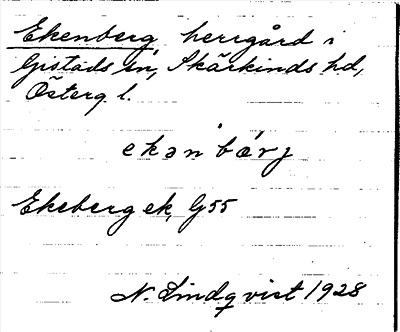 Ekenberg, herrgård i
Gistads sn, Skärkinds hd,
Österg. l.
ekənbærj
Ekeberg ek, G 55
N. Lindqvist 1928